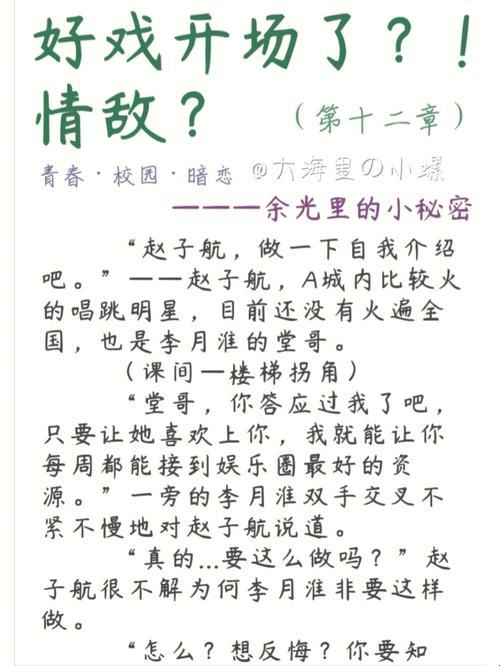 好戏开场了？！
情敌？
（第十二章）
青春·校园·暗恋
@大海里の小螺
———余光里的小秘密
“赵子航，做一下自我介绍
吧。”——赵子航，A城内比较火
的唱跳明星，目前还没有火遍全
国，也是李月淮的堂哥。
（课间—楼梯拐角）
“堂哥，你答应过我了吧，
只要让她喜欢上你，我就能让你
每周都能接到娱乐圈最好的资
源。”一旁的李月淮双手交叉不
紧不慢地对赵子航说道。
“真的...要这么做吗？”赵
子航很不解为何李月淮非要这样
做。
“怎么？想反悔？你要知